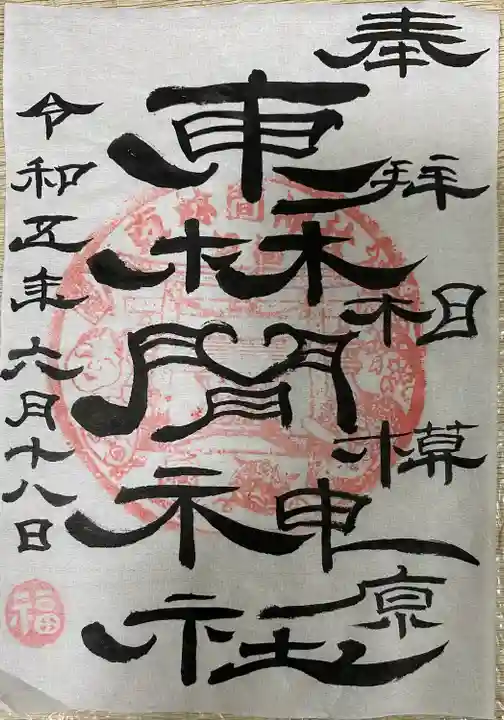 奉拝
相模原
東林間神社
令和五年六月十八日
福